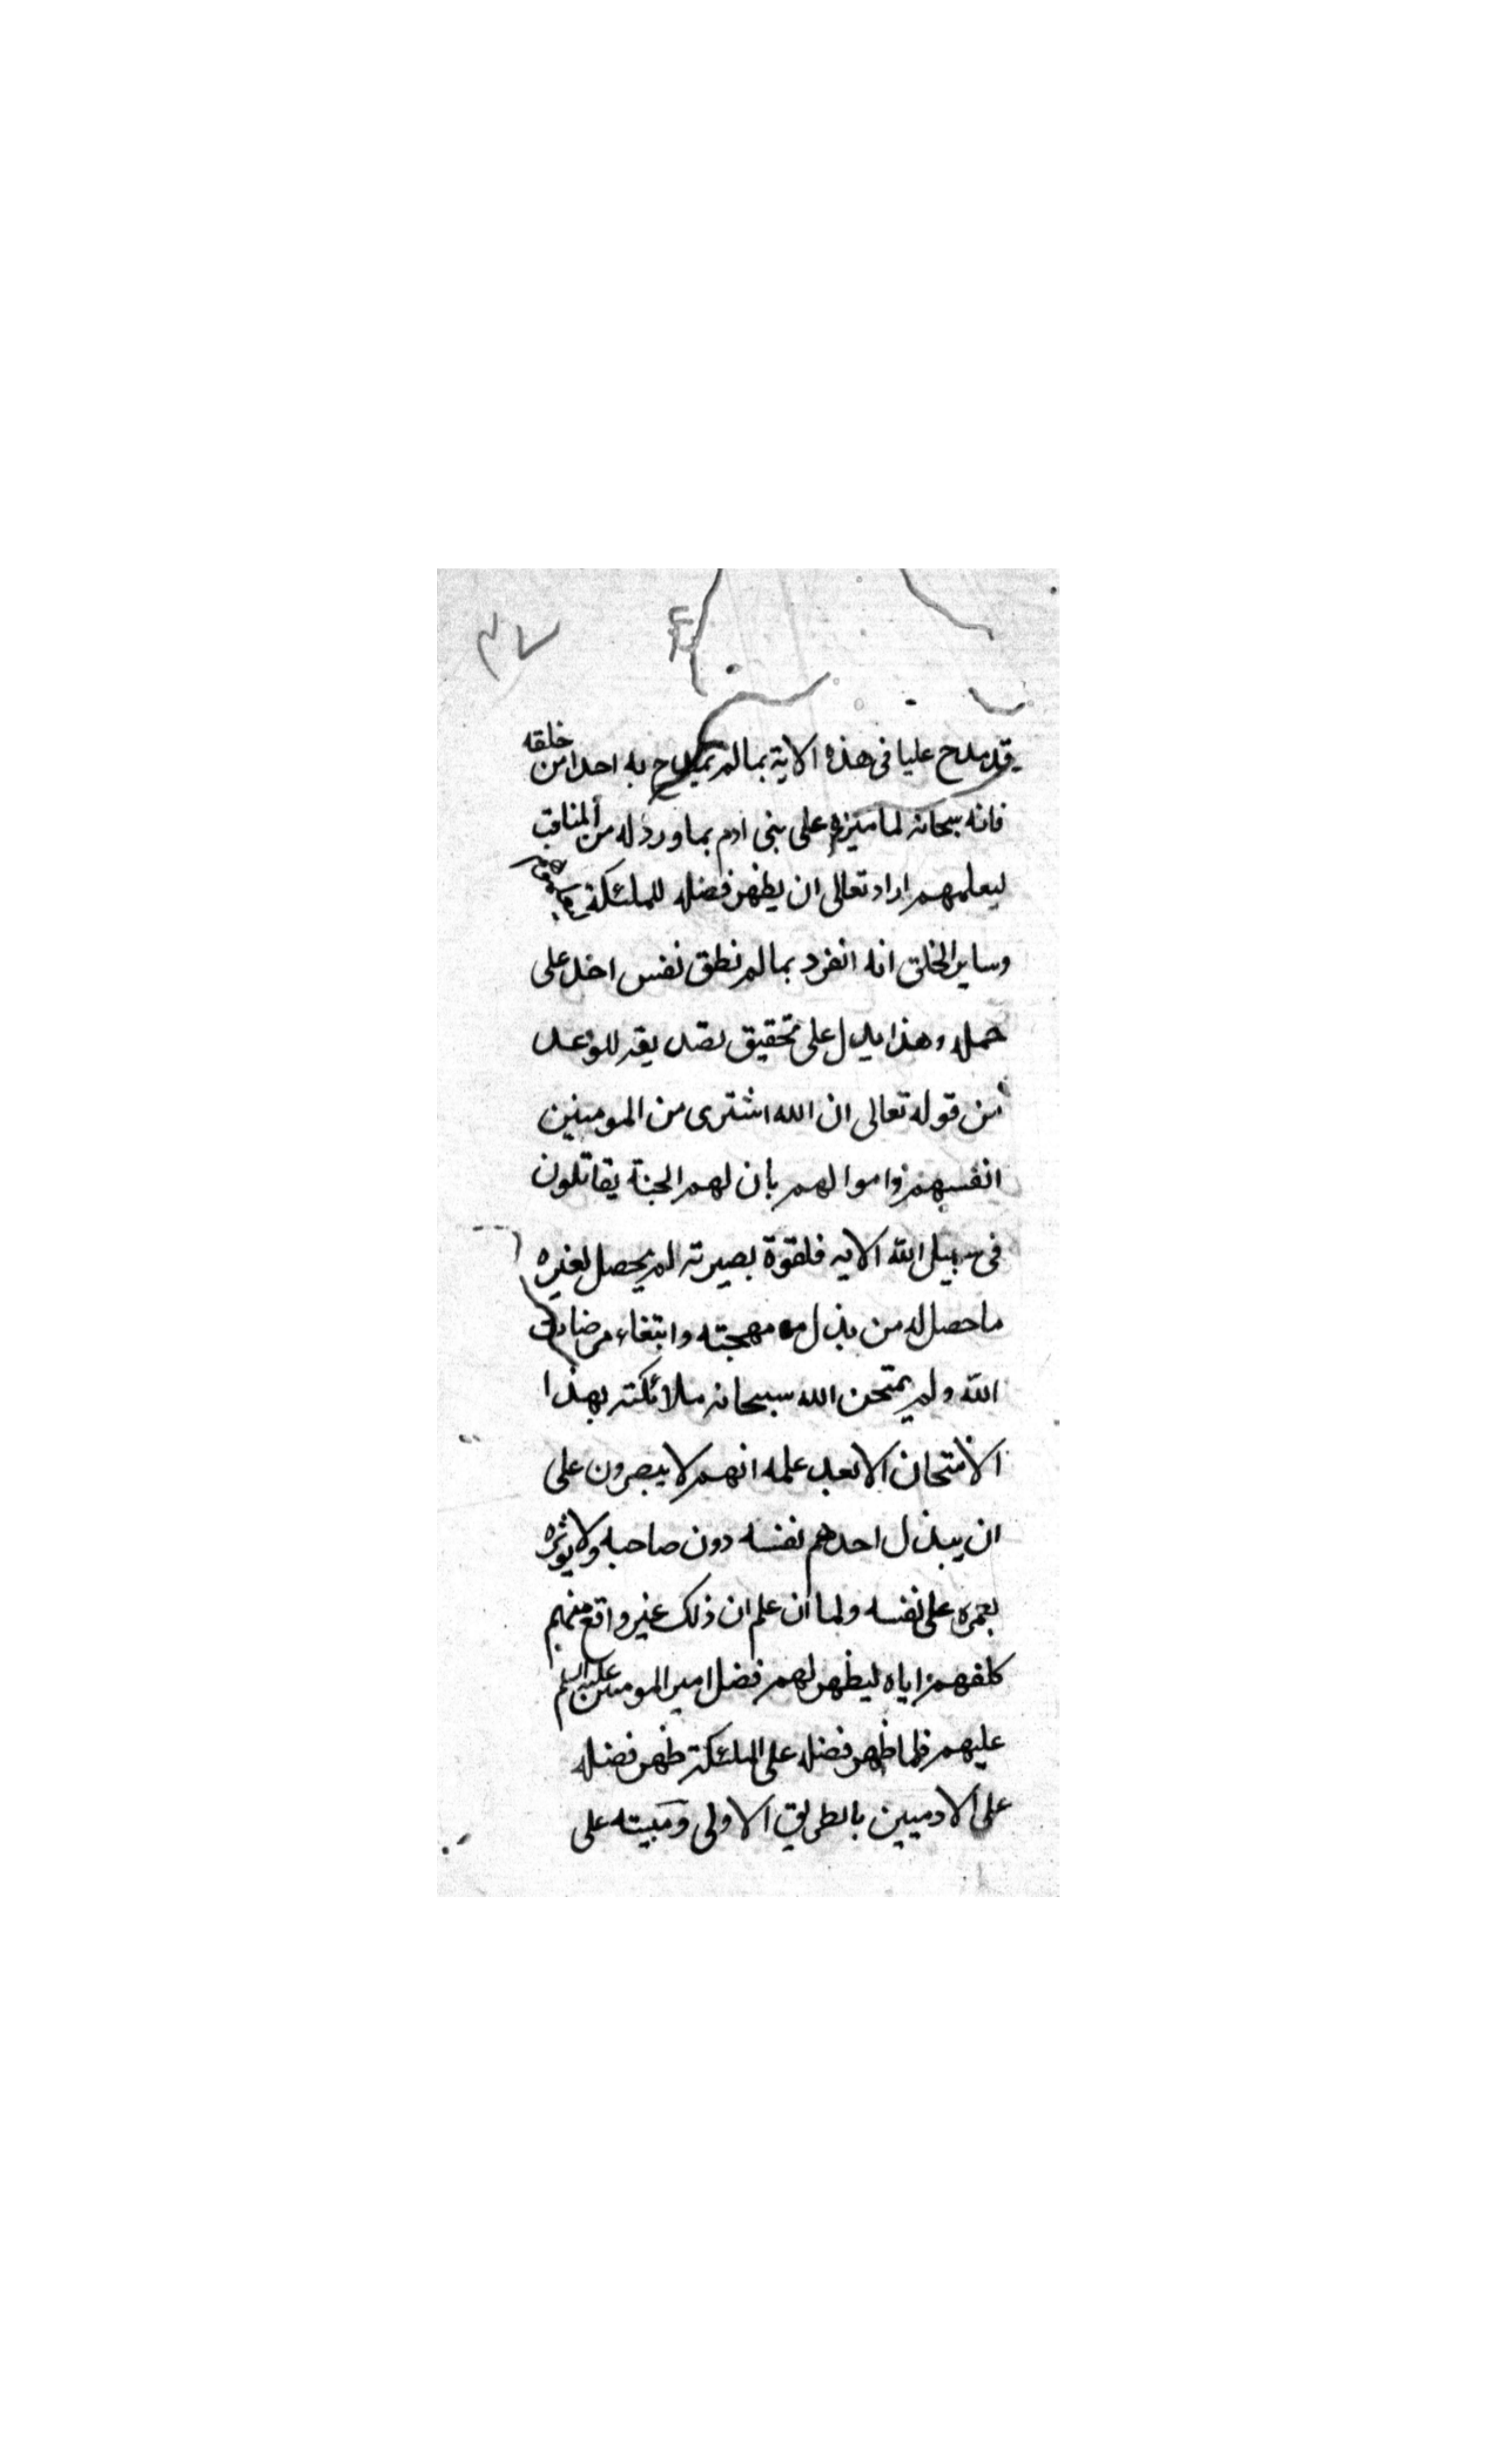 ٣٧
قد مدح عليا في هذه الاية بما لم يمدح به احدا من خلقه
فانه سبحانه لما ميزه على بني ادم بما ورد له من المناقب
ليعلمهم اراد تعالى ان يظهر فضله للملئكة
وساير الخلق انه انفرد بما لم نطق نفس احد على
حمله وهذا يدل على تحقيق تصديقه للوعد
من قوله تعالى ان الله اشترى من المومنين
انفسهم واموالهم بان لهم الجنة يقاتلون
في سبيل الله الايه فلقوة بصيرته لم يحصل لغيره
ما حصل له من بذل مهجته وابتغاء مرضات
الله ولم يمتحن الله سبحانه ملائكته بهذا
الامتحان الا بعد علمه انهم لا يبصرون على
ان يبذل احدهم نفسه دون صاحبه ولا يوثره
بعمره على نفسه ولما ان علم ان ذلك غير واقع منهم
كلفهم اياه ليظهر لهم فضل امير المومنين عليه السلم
عليهم فلما ظهر فضله على الملئكة ظهر فضله
على الادميين بالطريق الاولى ومبيته على